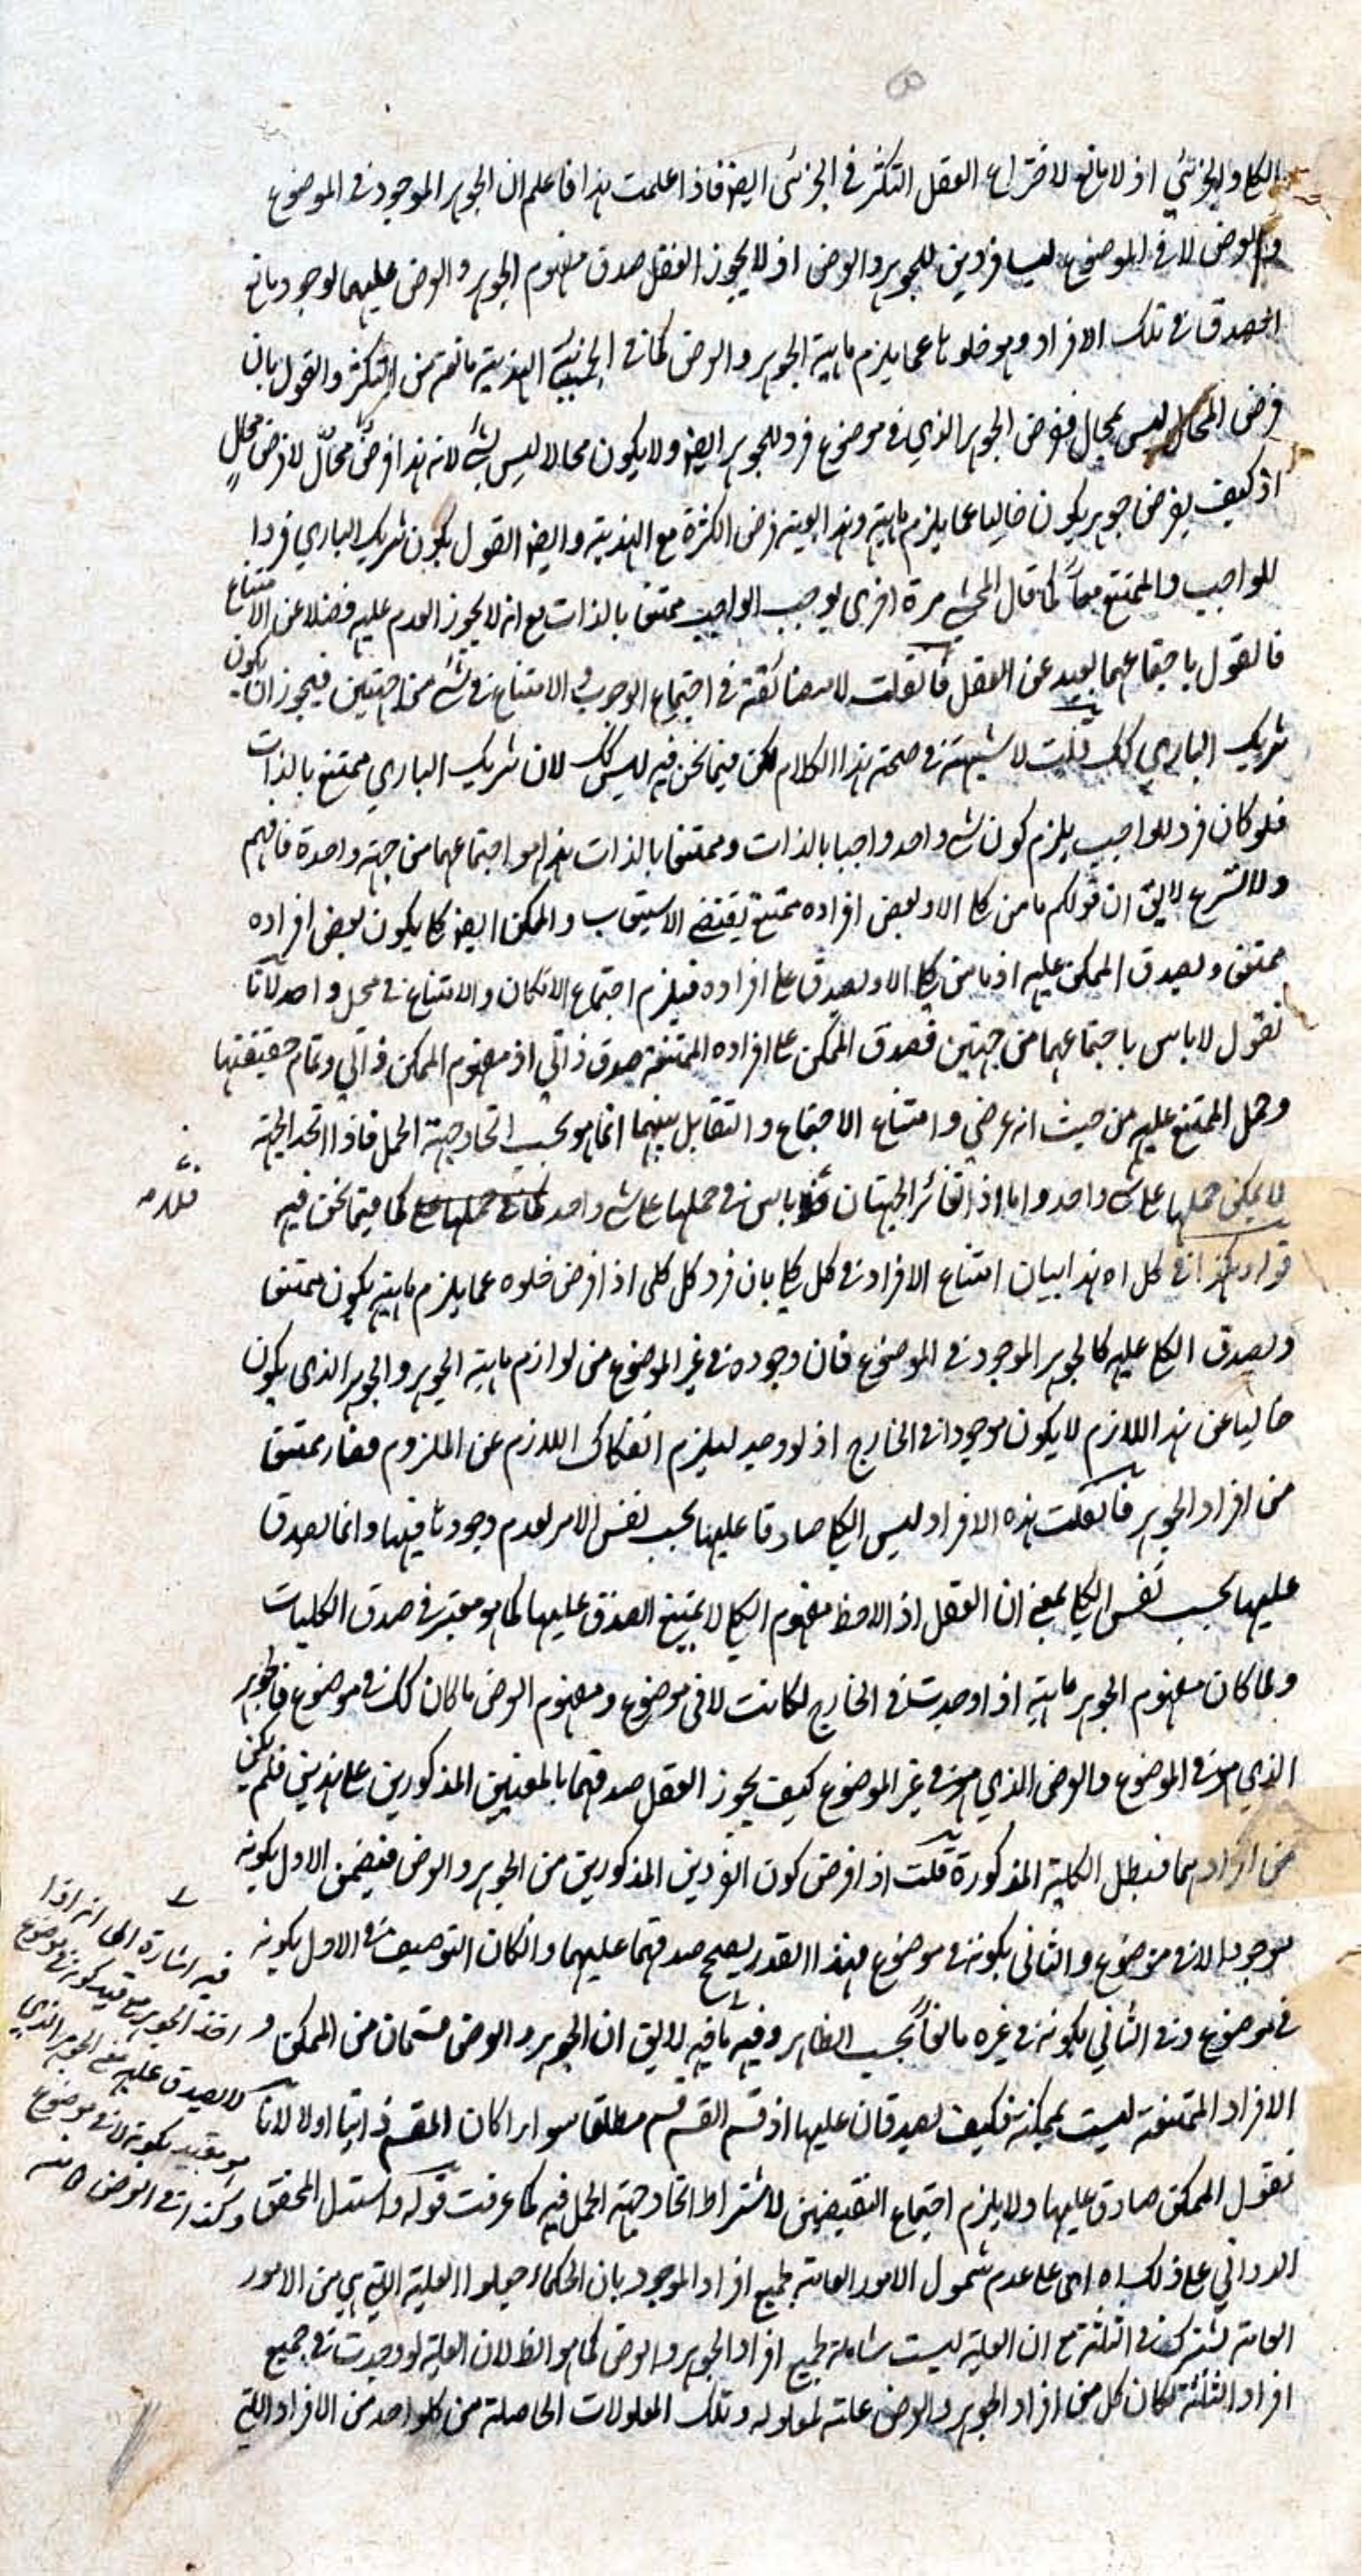 الكلي والجزئي اذ لا مانع لاختراع العقل التكثر في الجزئي ايضا فاذا علمت هذا فاعلم ان الجوهر الموجود في الموضوع
والعرض لا في الموضوع ليسا فردين للجوهر والعرض اذ لا يجوز العقل صدق مفهوم الجوهر والعرض عليهما لوجود مانع
الصدق في تلك الافراد وهو خلوها عما يلزم ماهية الجوهر والعرض كما في الجزئي الهذية مانعة من التكثر والقول بان
فرض المحال ليس بمحال ففرض الجوهر الذي في موضوع فرد للجوهر ايضا ولا يكون محالا ليس بشئ لانه هذا فرضٌ محالٌ لا فرض محالٍ
اذ كيف يفرض جوهر يكون خاليا عما يلزم ماهيته وهذا بعينه فرض الكثرة مع الهذية وايضا القول بكون شريك الباري فردا
للواجب والممتنع معاً كما قال المحشي مرة اخرى يوجب الواجب ممتنعا بالذات مع انه لا يجوز العدم عليه فضلا عن الامتناع
فالقول باجتماعهما بعيد عن العقل فان قلت لا مضائقة في اجتماع الوجوب والامتناع في شئ من جهتين فيجوز ان يكون
شريك الباري كك قلت لا شبهة في صحة هذا الكلام لكن فيما نحن فيه ليس كك لان شريك الباري ممتنع بالذات
فلو كان فردا للواجب يلزم كون شئ واحد واجبا بالذات وممتنعا بالذات هذا هو اجتماعهما من جهة واحدة فافهم
ولا تسرع لا يق ان قولكم ما من كلي الا وبعض افراده ممتنع يقتضي الاستيعاب والممكن ايضا كلي يكون بعض افراده
ممتنعا ويصدق الممكن عليه اذ ما من كلي الا ويصدق على افراده فيلزم اجتماع الامكان والامتناع في محل واحد لانا
نقول لا باس باجتماعهما من جهتين فصدق الممكن على افراده الممتنعة صدق ذاتي اذ مفهوم الممكن ذاتي وتمام حقيقتها
وحمل الممتنع عليه من حيث انه عرضي وامتناع الاجتماع والتقابل بينهما انما هو بحسب اتحاد جهة الحمل فاذا اتحد الجهة
لا يمكن حملها على شئ واحد واما اذا تغاير الجهتان فلا باس في حملها على شئ واحد كما فيما نحن فيه
قوله وهكذا في كل اه هذا بيان امتناع الافراد في كل كلي بان فرد كل كلي اذا فرض خلوه عما يلزم ماهيته يكون ممتنعا
ويصدق الكلي عليه كالجوهر الموجود في الموضوع فان وجوده في غير الموضوع من لوازم ماهية الجوهر والجوهر الذي يكون
خاليا عن هذا اللازم لا يكون موجودا في الخارج اذ لو وجد ليلزم انفكاك اللازم عن الملزوم فصار ممتنعا
من افراد الجوهر فان قلت هذه الافراد ليس الكلي صادقا عليها بحسب نفس الامر لعدم وجودها فيها وانما يصدق
عليها بحسب نفس الكلي بمعنى ان العقل اذا لاحظ مفهوم الكلي لا يمتنع الصدق عليها كما هو معتبر في صدق الكليات
ولما كان مفهوم الجوهر ماهية اذا وجدت في الخارج لكانت لا في موضوع ومفهوم العرض ما كان كك في موضوع فالجوهر
الذي هو في الموضوع والعرض الذي هو في غير الموضوع كيف يجوز العقل صدقهما بالمعنيين المذكورين على هذين فلم يكن
من افرادهما فبطل الكلية المذكورة قلت اذا فرض كون الفردين المذكورين من الجوهر والعرض فيضمن الاول بكونه
موجودا لا في موضوع والثاني بكونه في موضوع فبهذا القدر يصح صدقهما عليهما وان كان التوصيف في الاول بكونه
في موضوع وفي الثاني بكونه في غيره مانعاً بحسب الظاهر وفيه ما فيه لا يق ان الجوهر والعرض قسمان من الممكن و
الافراد الممتنعة ليست بممكنة فكيف يصدقان عليها اذ قسم القسم قسم مطلقا سواء كان المقسم ذاتيا اولا لانا
نقول الممكن صادق عليها ولا يلزم اجتماع النقيضين لاشتراط اتحاد جهة الحمل فيه كما عرفت قوله واستدل المحقق
الدواني على ذلك اه اى على عدم شمول الامور العامة لجميع افراد الموجود بان الحكماء جعلوا العلية التي هي من الامور
العامة يشترك في الثلثة مع ان العلية ليست شاملة لجميع افراد الجوهر والعرض كما هو الظ لان العلية لو وجدت في جميع
افراد الثلثة لكان كل من افراد الجوهر والعرض علة لمعلوله وتلك المعلولات الحاصلة من كل واحد من الافراد التي
فيه اشارة الى انه اذا
اخذ الجوهر مع قيد كونه في موضوع
لا يصدق عليه معنى الجوهر الذي
هو مقيد بكونه لا في موضوع
وكذا في العرض منه